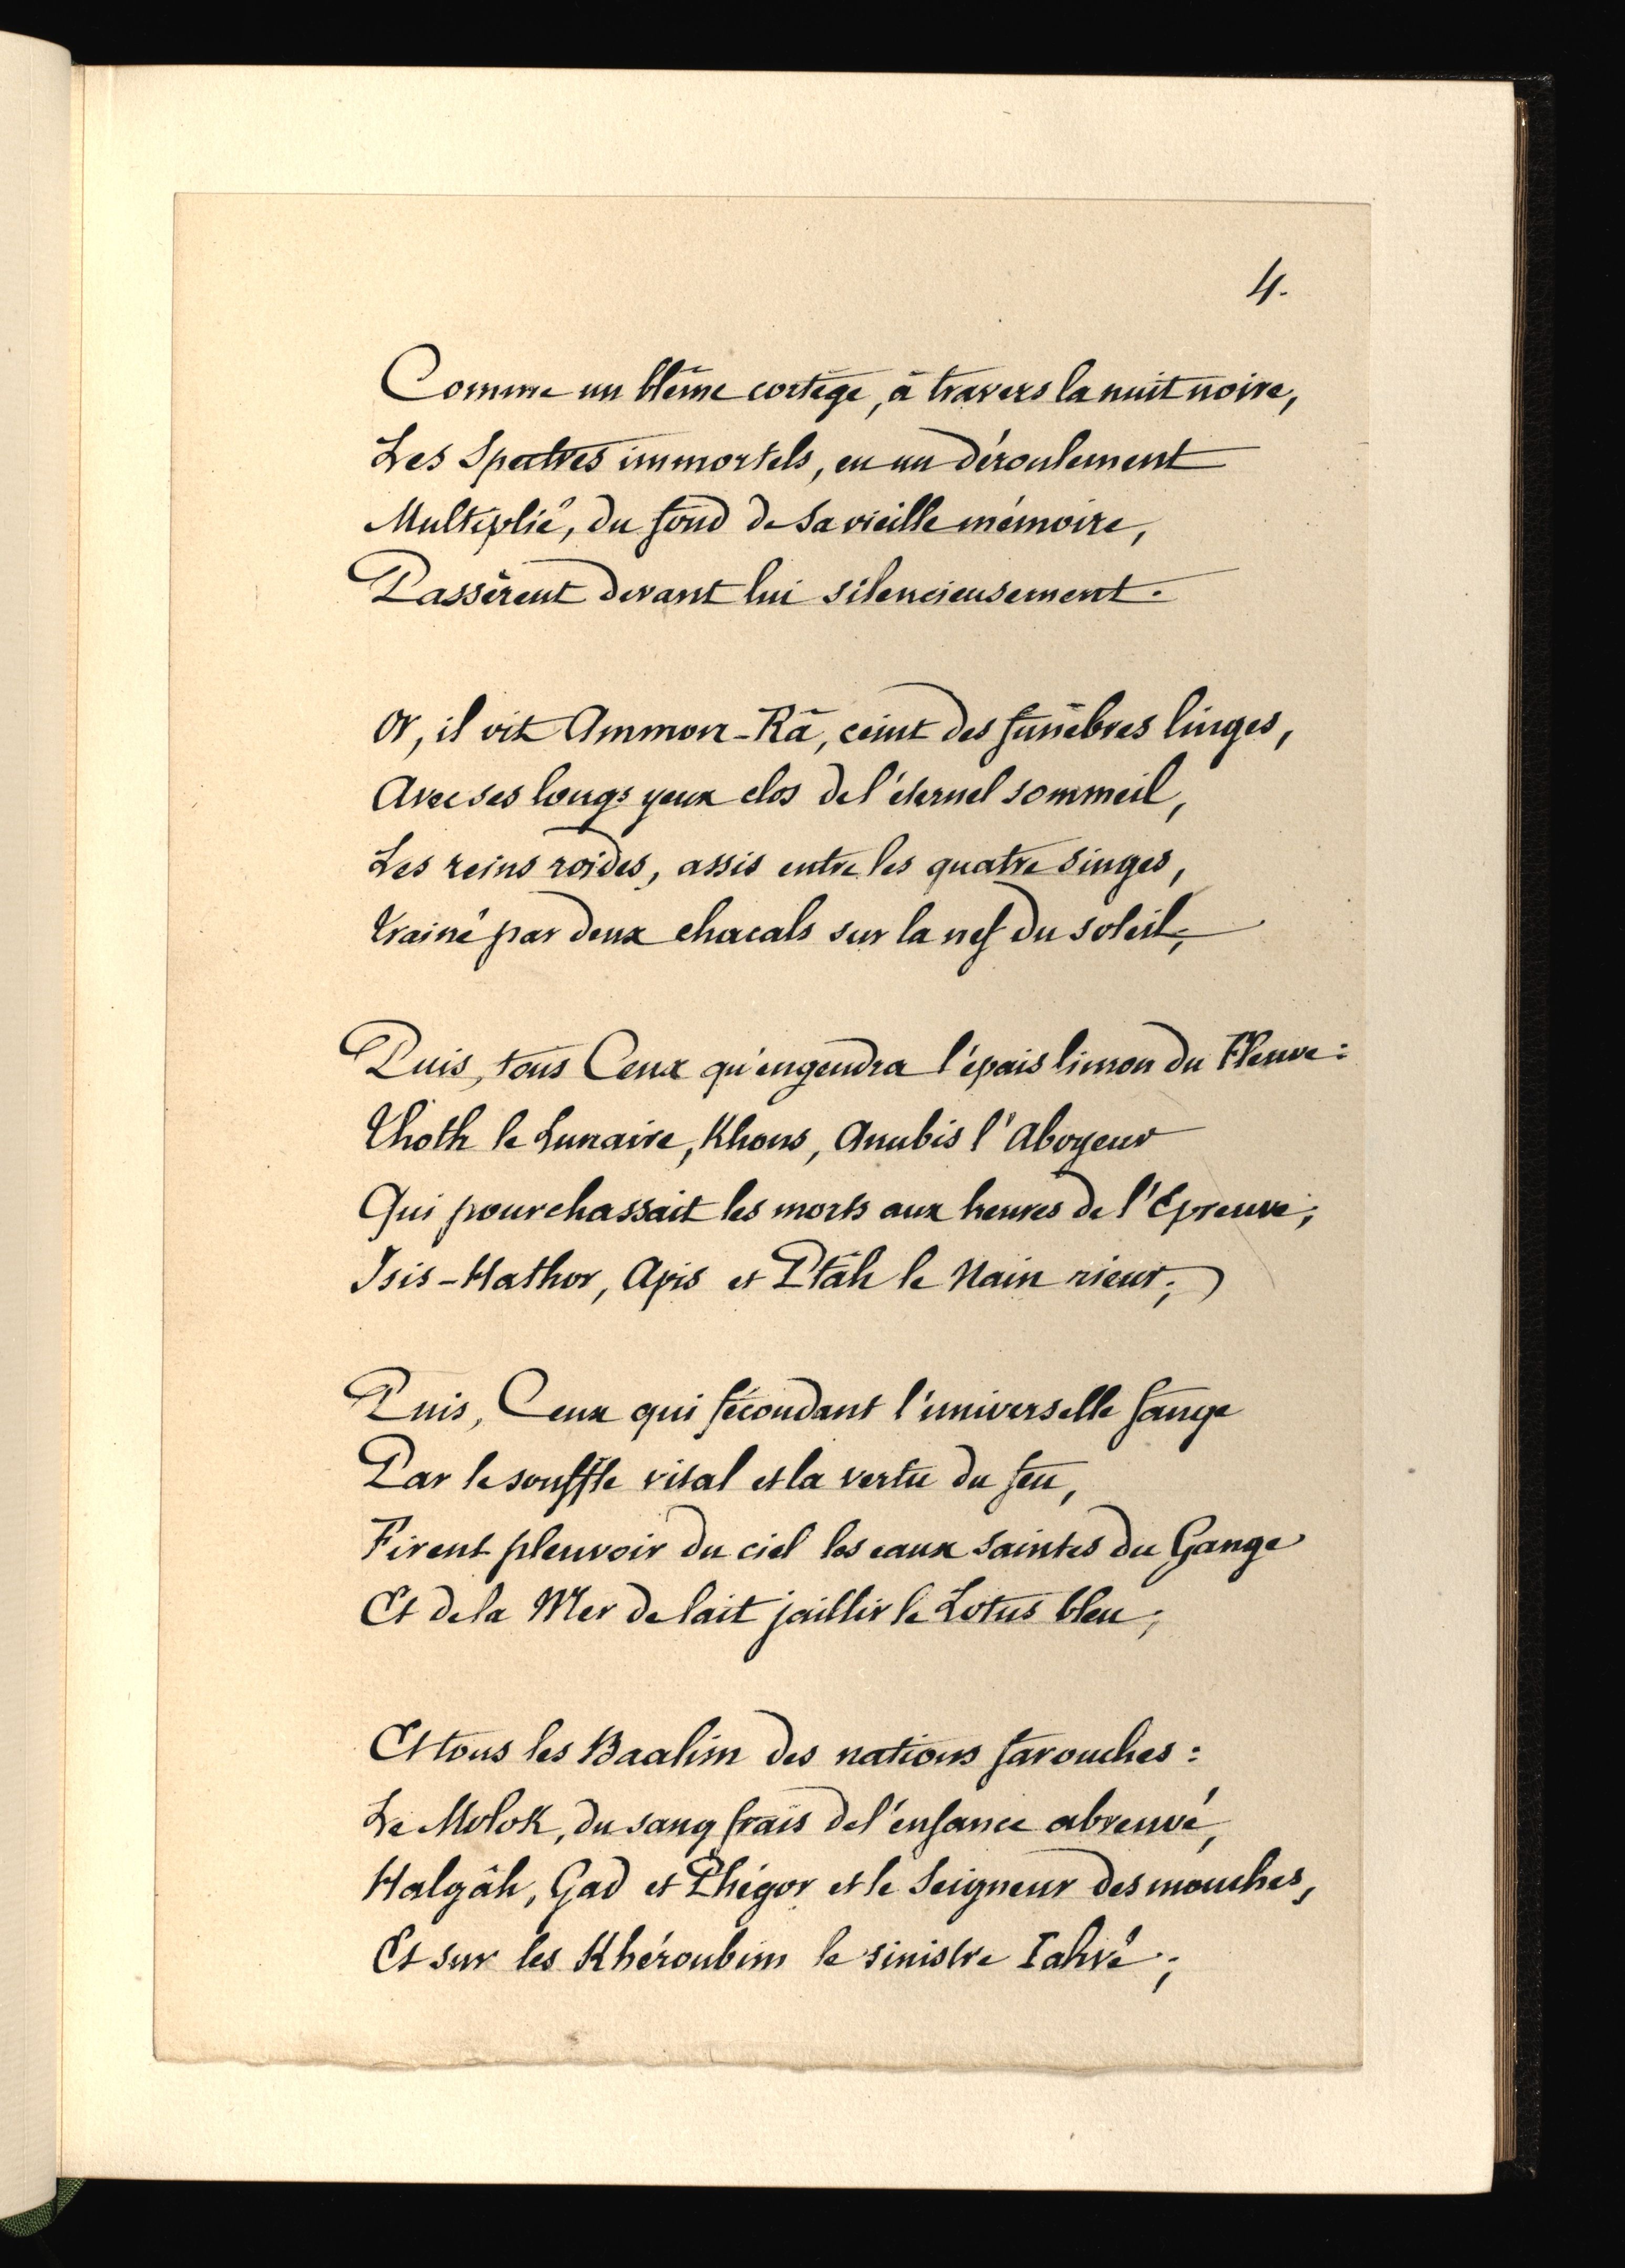 4.
Comme un blême cortège, à travers la nuit noire,
Les Spectres immortels, en un déroulement
Multiplié, du fond de sa vieille mémoire,
Passèrent devant lui silencieusement.
Or, il vit Ammon-Râ, ceint des funèbres linges,
Avec ses longs yeux clos de l'éternel sommeil,
Les reins roides, assis entre les quatre singes,
Traîné par deux chacals sur la nef du soleil;
Puis, tous Ceux qu'engendra l'épais limon du Fleuve:
Thoth le Lunaire, Khons, Anubis l'Aboyeur
Qui pourchassait les morts aux heures de l'Epreuve;
Isis-Hathor, Apis et Ptâh le Nain rieur;
Puis, Ceux qui fécondant l'universelle fange
Par le souffle vital et la vertu du feu,
Firent pleuvoir du ciel les eaux saintes du Gange
Et de la Mer de lait jaillir le Lotus bleu;
Et tous les Baalim des nations farouches:
Le Molok, du sang frais de l'enfance abreuvé,
Halgâh, Gad et Phégor et le Seigneur des mouches,
Et sur les Khéroubim le sinistre Iahvé;